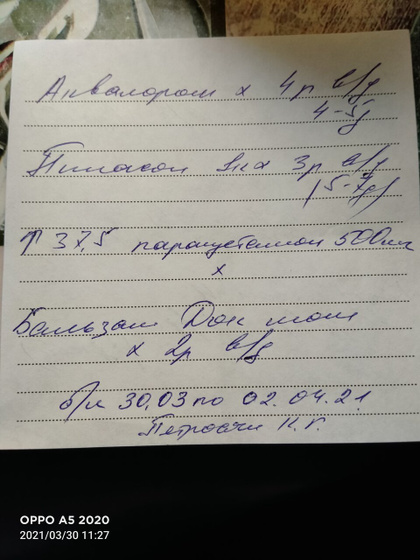 Аквалором х 4 р в/д
4-5д
Пиносол 1к х 3р в/д
(5-7д)
↑ 37,5 парацетамол 500мг
х
Бальзам Док мом
х 2р в/д
б/л 30.03 по 02.04.21
Петросян К.Г.
OPPO A5 2020
2021/03/30 11:27